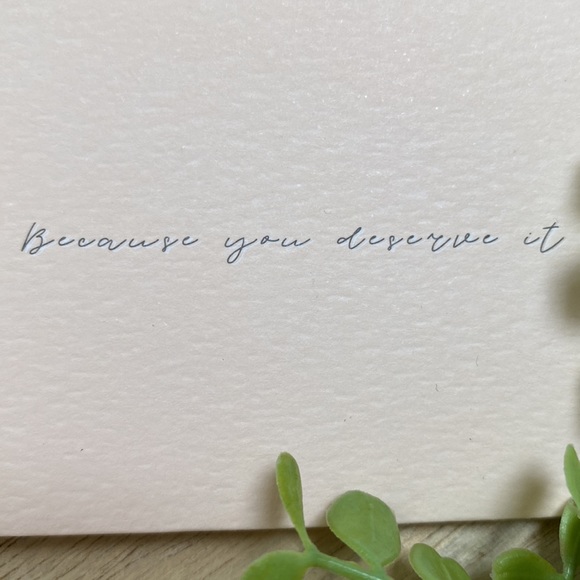 Because you deserve it